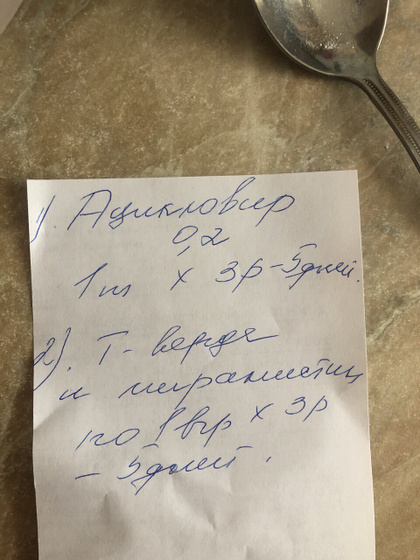 1). Ацикловир
0,2
1т х 3р - 5дней.
2). Т-
и мирамистин
по 1 х 3р
- 5дней.